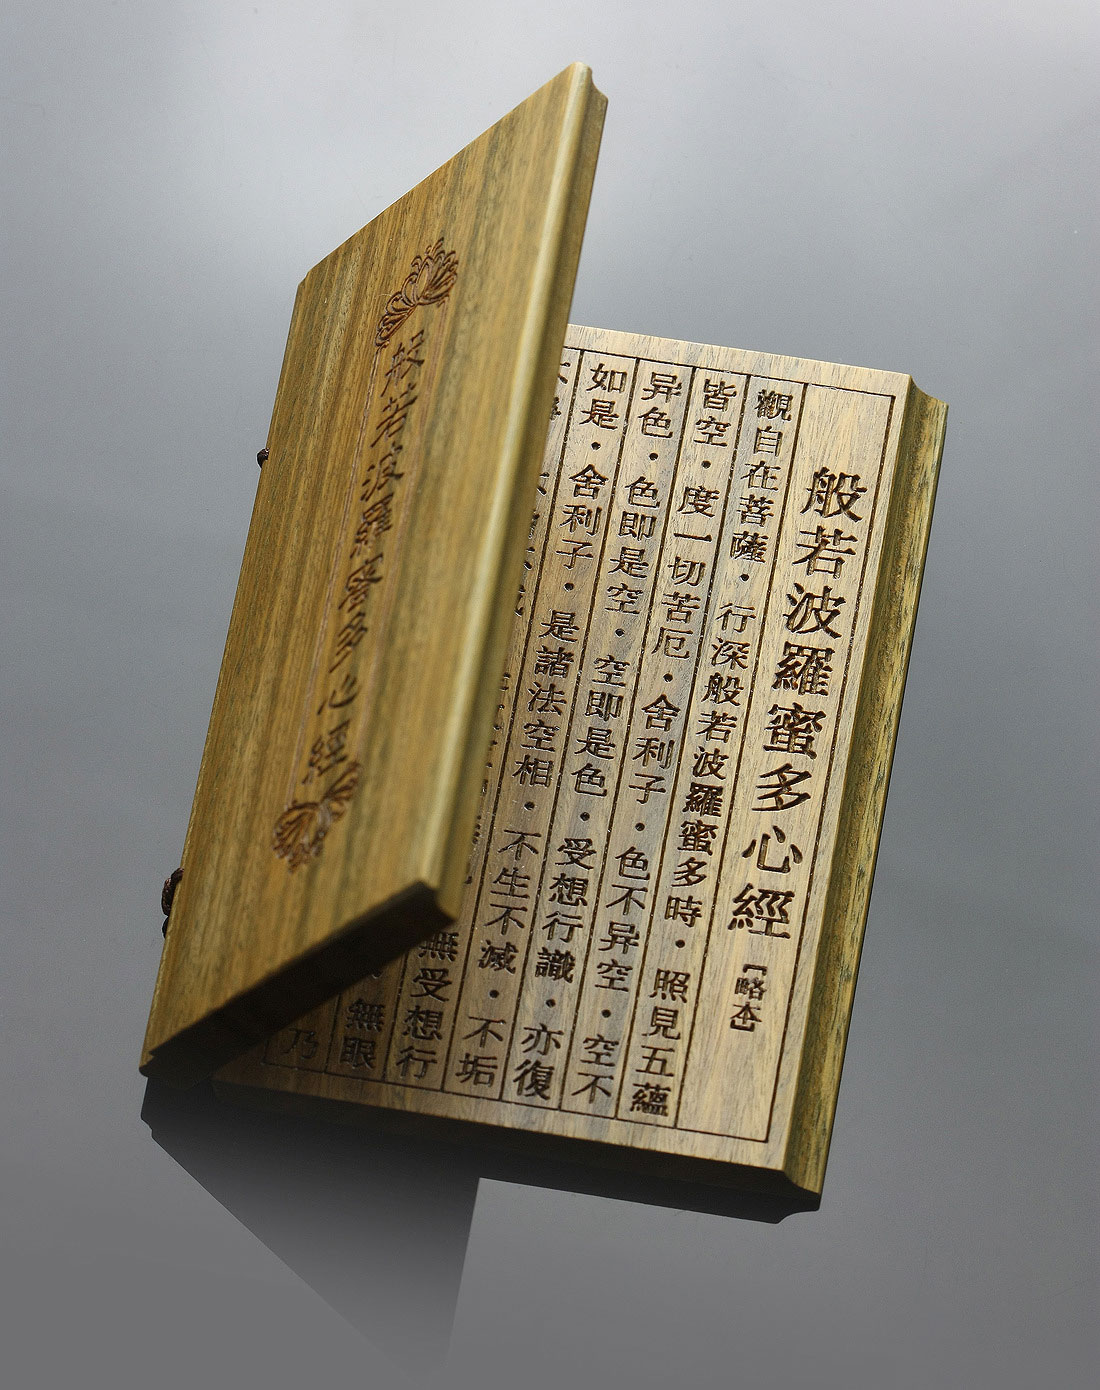 般若波羅蜜多心經
般若波羅蜜多心經【略本】
觀自在菩薩・行深般若波羅蜜多時・照見五蘊
皆空・度一切苦厄・舍利子・色不异空・空不
异色・色即是空・空即是色・受想行識・亦復
如是・舍利子・是諸法空相・不生不滅・不垢
無受想行
無眼
乃